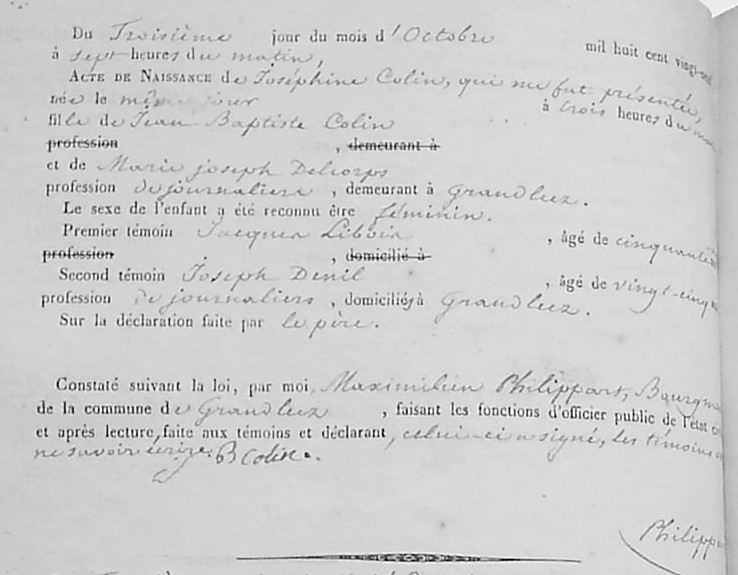 Du Troisième jour du mois d'Octobre mil huit cent vingt-
à sept heures du matin,
ACTE DE NAISSANCE de Joséphine Colin, qui me fut présentée,
née le même jour à trois heures du
fille de Jean Baptiste Colin
profession , demeurant à
et de Marie joseph Delcorps
profession de journaliers , demeurant à Grandleez.
Le sexe de l'enfant a été reconnu être féminin.
Premier témoin Jacques Libois , âgé de cinquante
profession , domicilié à
Second témoin Joseph Denil , âgé de vingt-cinq
profession de journaliers , domiciliés à Grandleez.
Sur la déclaration faite par le père.
Constaté suivant la loi, par moi Maximilien Philippart, Bourgme
de la commune de Grandleez , faisant les fonctions d'officier public de l'état
et après lecture faite aux témoins et déclarant, celui-ci a signé, les témoins
ne savoir écrire. B Colin.
Philippa